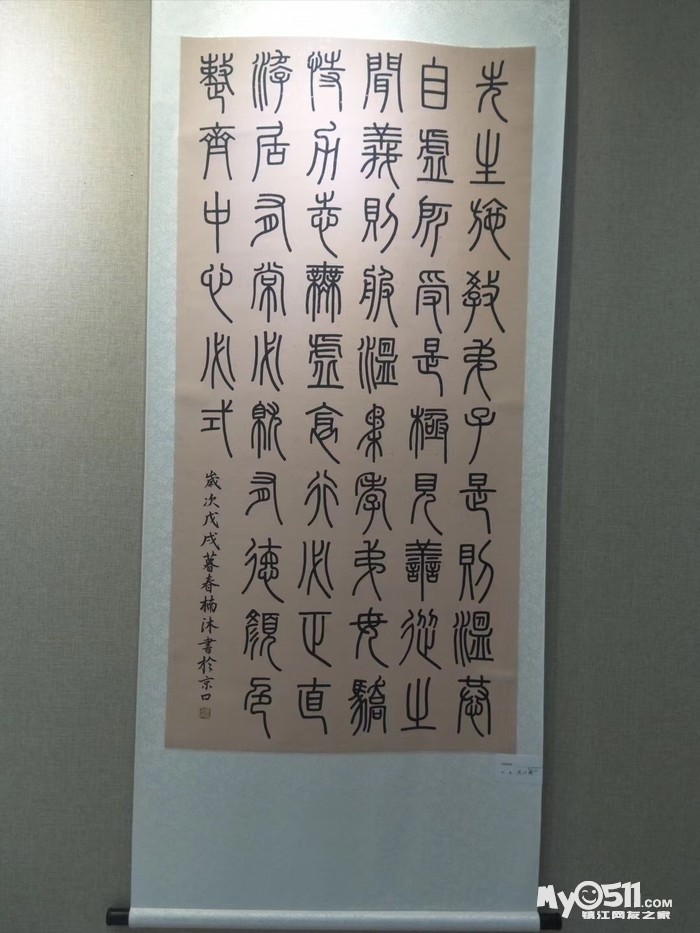 先生施教弟子是則溫恭
自虛所受是極見善從之
聞義則服溫柔孝弟毋驕
恃力志無虛邪行必正直
游居有常必就有德顏色
整齊中心必式
歲次戊戌暮春楠沐書於京口
My0511.com
镇江网友之家